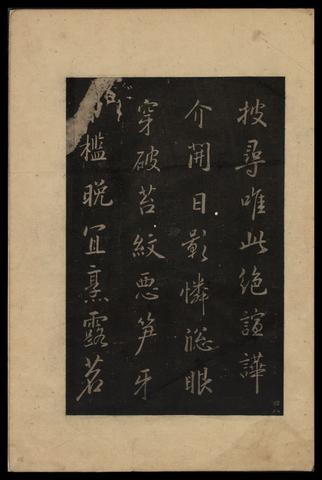 披尋唯此絕諠譁
介開日影憐牕眼
穿破苔紋惡笋牙
檻晚宜烹露茗